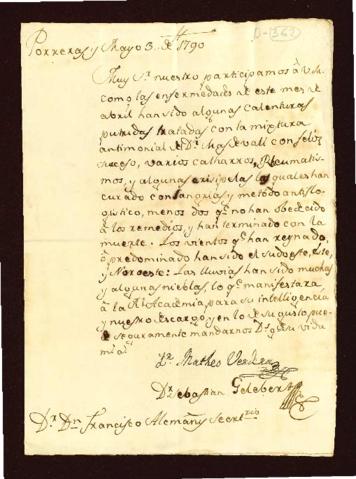 Porreras y Mayo 3. de 1790
D-(362)
Muy Sr. nuestro participamos â Vm.
como las enfermedades de este mes de
abril han sido algunas calenturas
putridas tratadas con la mixtura
antimonial de Dr. Masdevall con feliz
suceso, varios catharros, Rheumatis-
mos, y algunas erisipelas las quales han
curado con sangrias y metodo antiflo-
gistico, menos dos qe. no han obedecido
â los remedios y han terminado con la
muerte. Los vientos qe. han reynado,
ô predominado han sido el sudoeste, Este, y
Noroeste: Las lluvias han sido muchas
y algunas nieblas, lo qe. manifestarâ
â la Rl. Academia, para su intelligencia
y nuestro Encargo y en lo de su gusto pue-
de seguramente mandarnos Ds. gue. su vida
m. a.
Dr. Matheo Verder
Dr. Sebastian Gelebert
Dr. Dn. Francisco Alemañy Secretrio